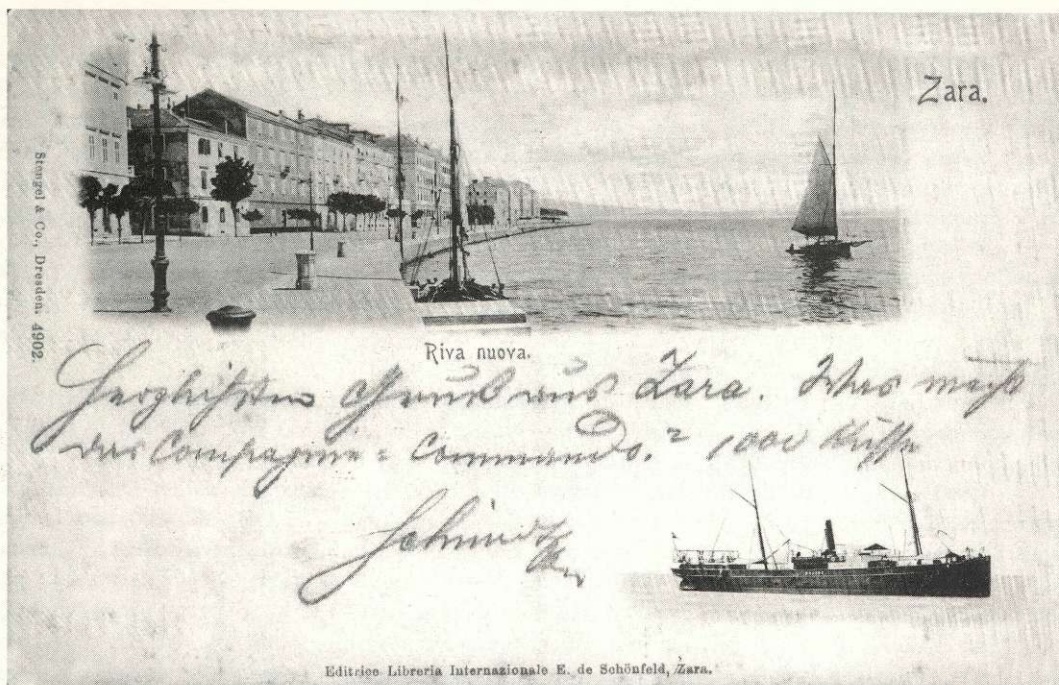 Zara.
Stengel & Co., Dresden. 4902.
Riva nuova.
Herzlichsten Gruß aus Zara. Was macht
das Compagnie = Commando? 1000 Küsse
Editrice Libreria Internazionale E. de Schönfeld, Zara.